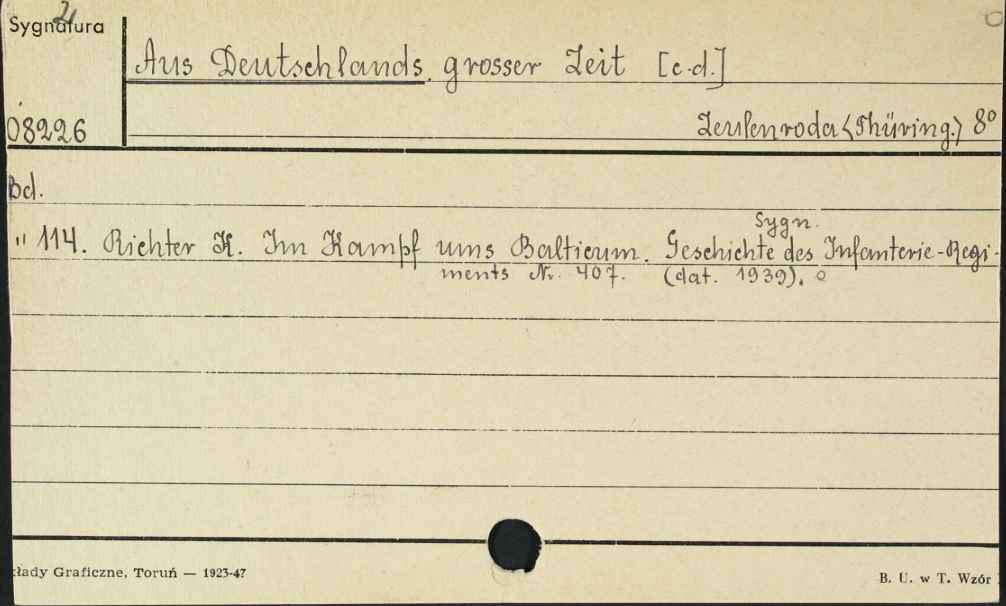 2
Sygnatura
Aus Deutschlands grosser Zeit [c.d.]
08226
Zeulenroda <Thüring.> 8°
Bd.
Sygn.
" 114. Richter K. Im Kampf ums Balticum. Geschichte des Infanterie-Regi-
ments Nr. 407. (dat. 1939).
kłady Graficzne, Toruń — 1923-47
B. U. w T. Wzór